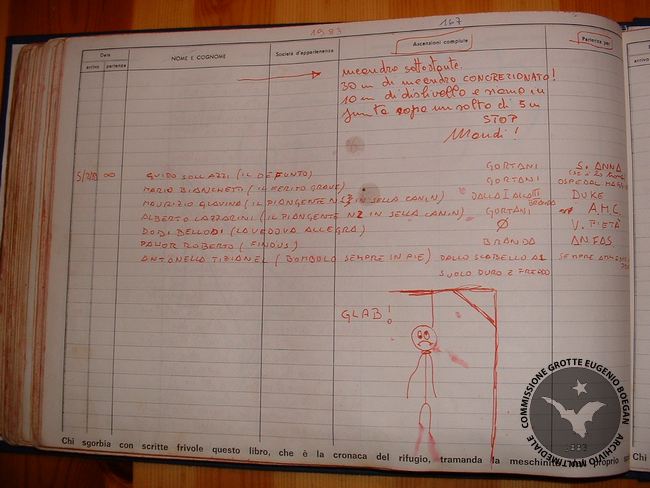 1983
167
Data
arrivo
partenza
NOME E COGNOME
Società d'appartenenza
Ascensioni compiute
Partenza per
meandro sottostante.
30 m di meandro CONCREZIONATO!
10 m di dislivello e siamo in
sopra un salto di 5 m
STOP
Mandi!
∞
GUIDO SOLLAZZI (IL DEFUNTO) GORTANI S. ANNA
MARIO BIANCHETTI (IL FERITO GRAVE) GORTANI OSPEDAL
MAURIZIO GLAVINA (IL PIANGENTE N1 IN SELLA CANIN) DUKE
ALBERTO LAZZARINI (IL PIANGENTE N2 IN SELLA CANIN) GORTANI A.M.C.
DODI BELLODI (LA VEDOVA ALLEGRA) Ø V. PIETÀ
PAHOR ROBERTO (FINDUS) BRANDA ANFAS
ANTONELLA TIZIANEL (BOMBOLO SEMPRE IN PIE) DALLO SGABELLO AL SEMPRE
SUOLO DURO E FREDDO
GLAB!
Chi sgorbia con scritte frivole questo libro, che è la cronaca del rifugio, tramanda la meschinità proprio
COMMISSIONE GROTTE EUGENIO BOEGAN
ARCHIVIO MULTIMEDIALE
1883